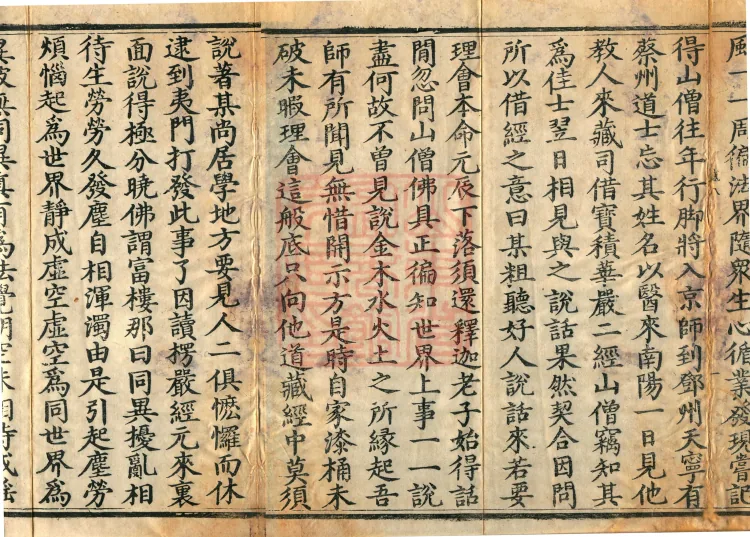 風一一周徧法界隨衆生心循業發現嘗記
得山僧往年行脚將入京師到鄧州天寧有
蔡州道士忘其姓名以醫來南陽一日見他
教人來藏司借寶積華嚴二經山僧竊知其
爲佳士翌日相見與之說話果然契合因問
所以借經之意曰某粗聽好人說話來若要
理會本命元辰下落須還釋迦老子始得話
閒忽問山僧佛具正徧知世界上事一一說
盡何故不曾見說金木水火土之所緣起吾
師有所聞見無惜開示方是時自家漆桶未
破未暇理會這般底只向他道藏經中莫須
說著某尚居學地方要見人二俱懡㦬而休
逮到夷門打發此事了因讀楞嚴經元來裏
面說得極分曉佛謂富樓那曰同異擾亂相
待生勞勞久發塵自相渾濁由是引起塵勞
煩惱起爲世界靜成虛空虛空爲同世界爲
異彼無同異眞有爲法覺明空昧相待成搖